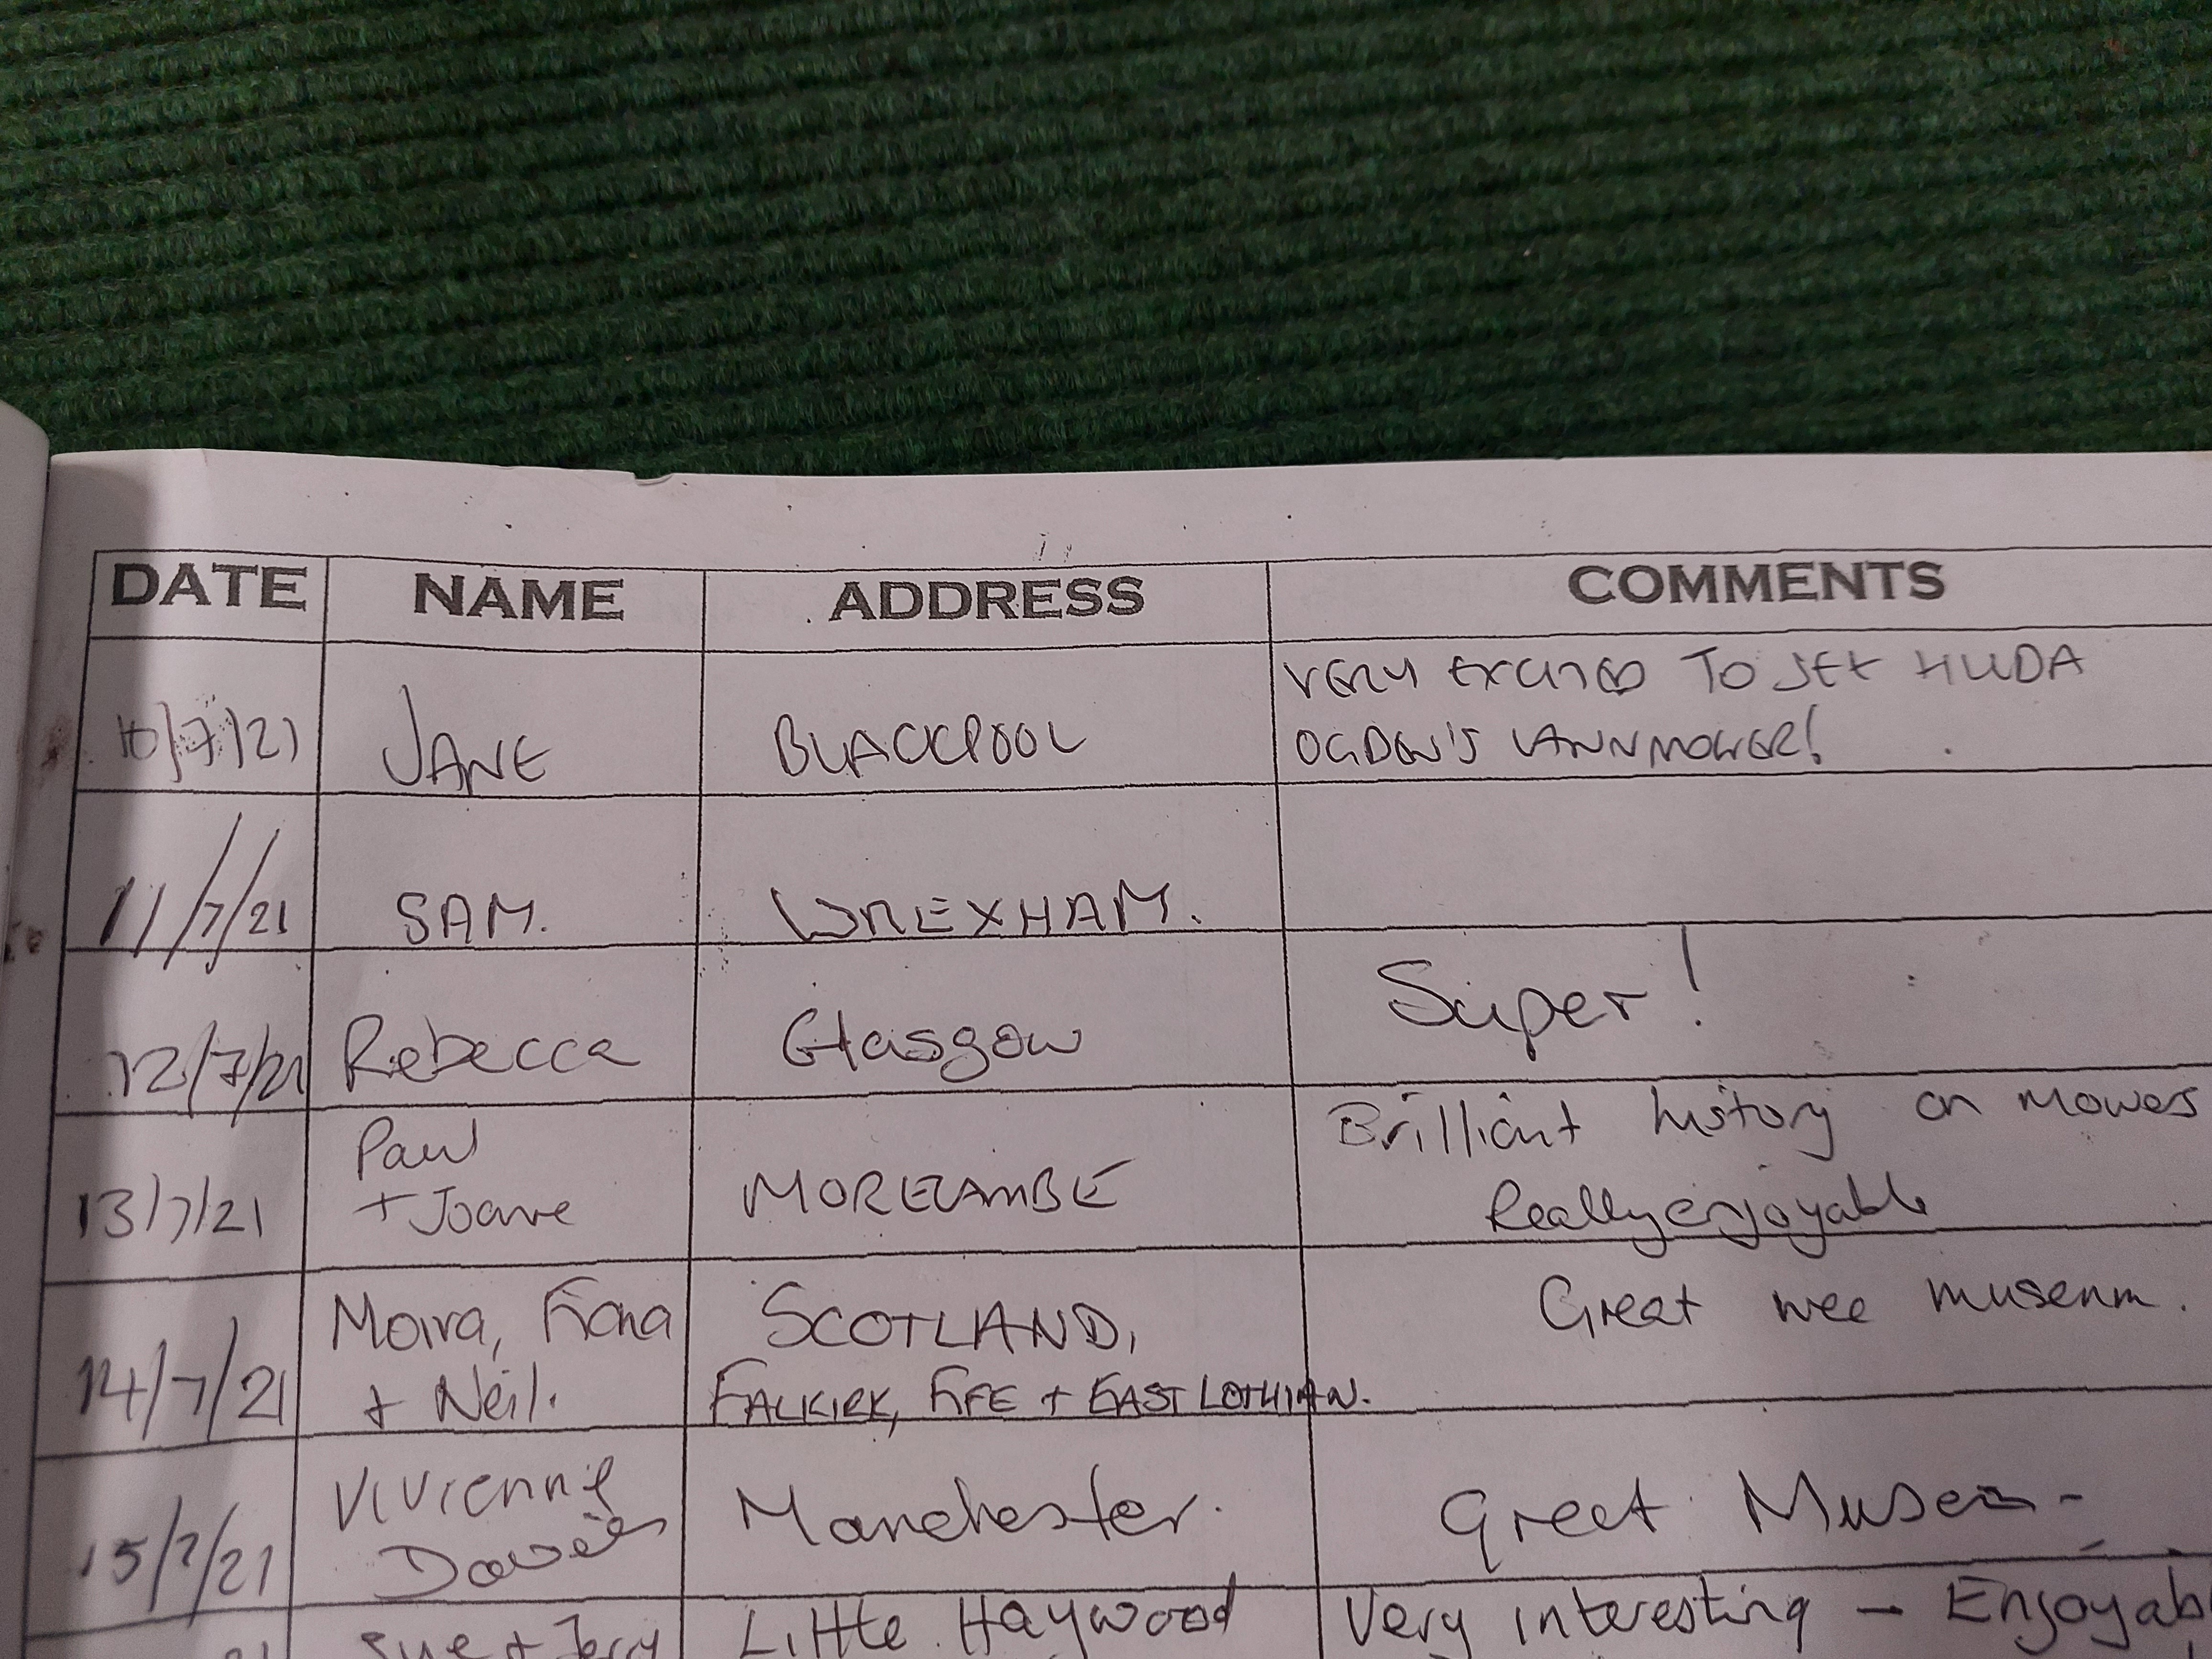 DATE NAME ADDRESS COMMENTS
10/7/21 JANE BLACKPOOL VERY EXCITED TO SEE HILDA
OGDEN'S LAWNMOWER!
11/7/21 SAM. WREXHAM.
12/7/21 Rebecca Glasgow Super!
13/7/21 Paul
+ Joanne MORECAMBE Brilliant history on mowers
Really enjoyable
14/7/21 Moira, Fiona
+ Neil. SCOTLAND,
FALKIRK, FIFE + EAST LOTHIAN. Great wee museum.
15/7/21 Vivienne
Davies Manchester. Great Museum
21 Sue + Terry Little Haywood Very interesting - Enjoyabl